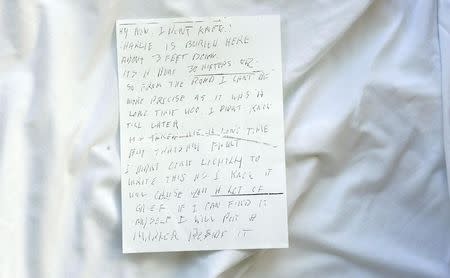 BY NOW. I WONT KNEW.
CHARLIE IS BURIED HERE
ABOUT 3 FEET DOWN.
ITS A BOUT 30 METERS OR
SO FROM THE ROAD I CANT BE
MORE PRECISE AS IT WAS A
LONG TIME AGO I DIDNT KNOW
TILL LATER
A LONG TIME
I DIDNT COME LIGHTLY TO
WRITE THIS AS I KNEW IT
WILL CAUSE YOU A LOT OF
GRIEF IF I CAN FIND IT
MYSELF I WILL PUT A
MARKER BESIDE IT